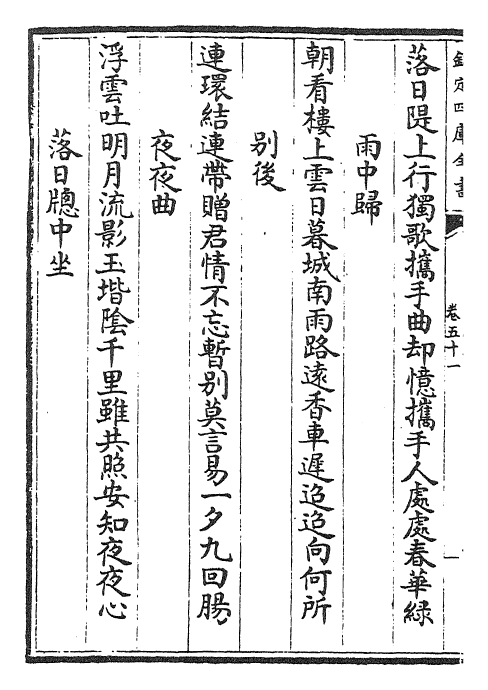 欽定四庫全書
卷五十一
一
落日隄上行獨歌攜手曲却憶攜手人處處春華緑
雨中歸
朝看樓上雲日暮城南雨路遠香車遲迢迢向何所
别後
連環結連帶贈君情不忘暫别莫言易一夕九回腸
夜夜曲
浮雲吐明月流影玉堦陰千里雖共照安知夜夜心
落日牎中坐